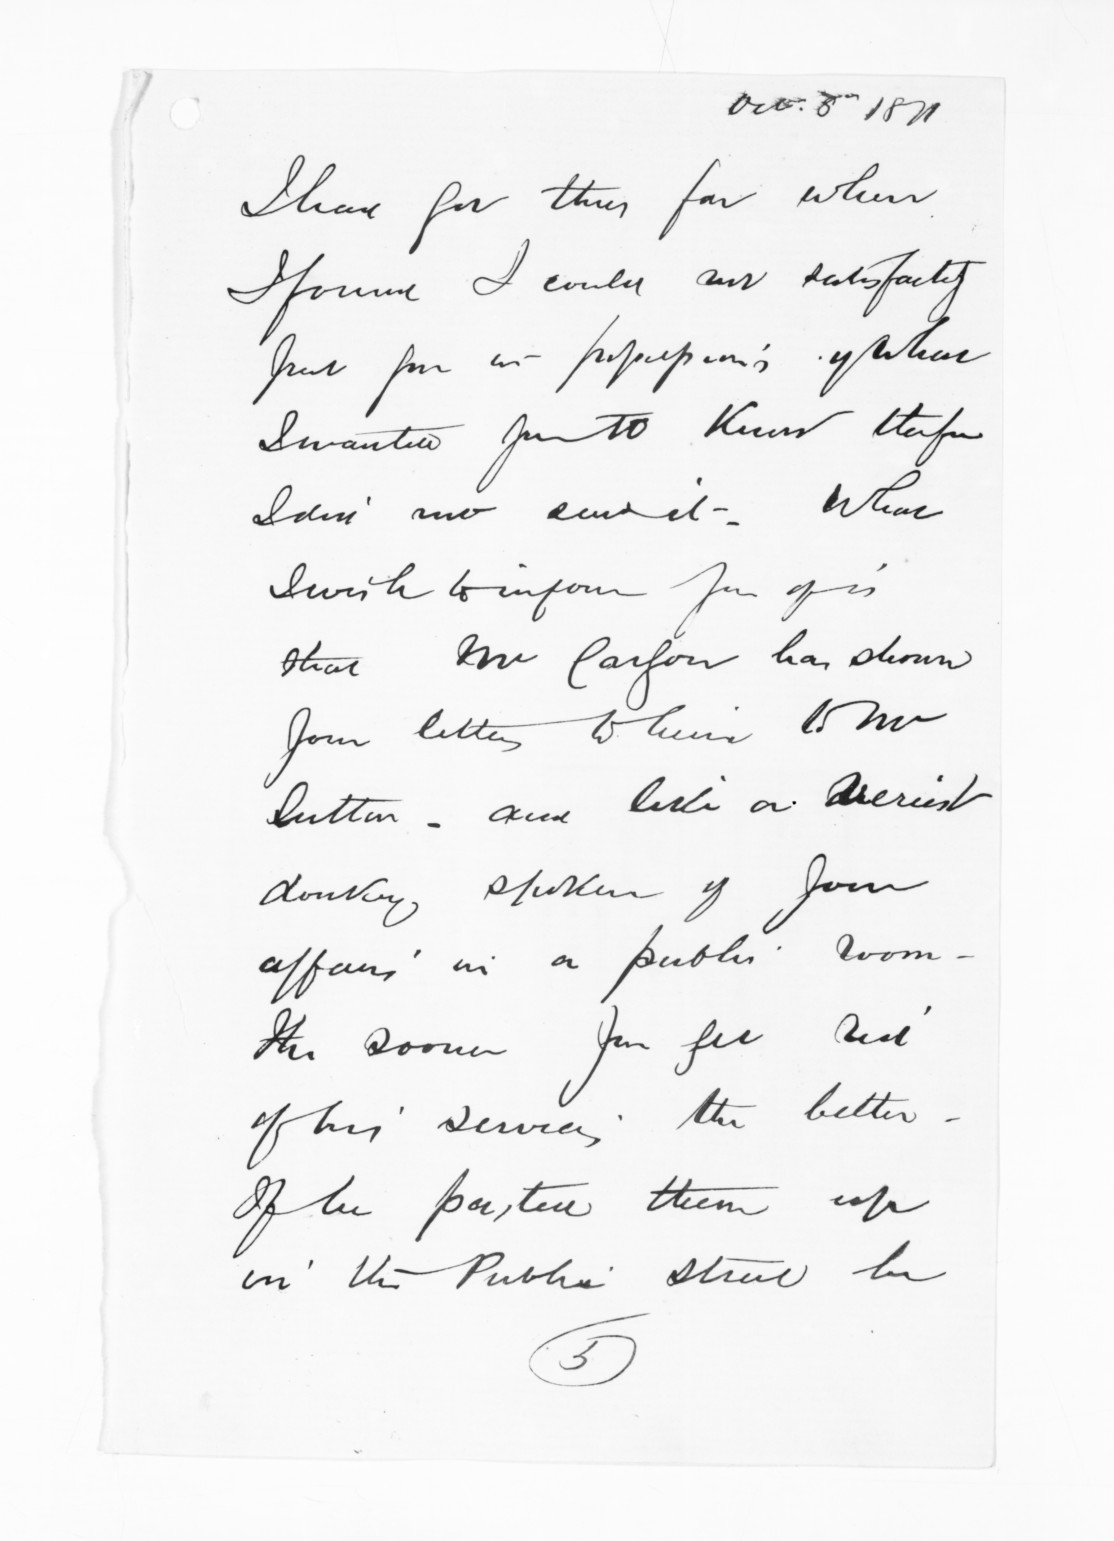 Oct. 5th 1871
I have got thus far when
I found I could not satisfactly
put you in possession of what
I wanted you to know therefore
I did not send it - What
I wish to inform you of is
that Mr has shown
your letters to him to Mr
Sutton - and like a veriest
donkey, spoken of your
affairs in a public room -
the sooner you get rid
of his services the better -
If he posted them up
in the Public street he
5